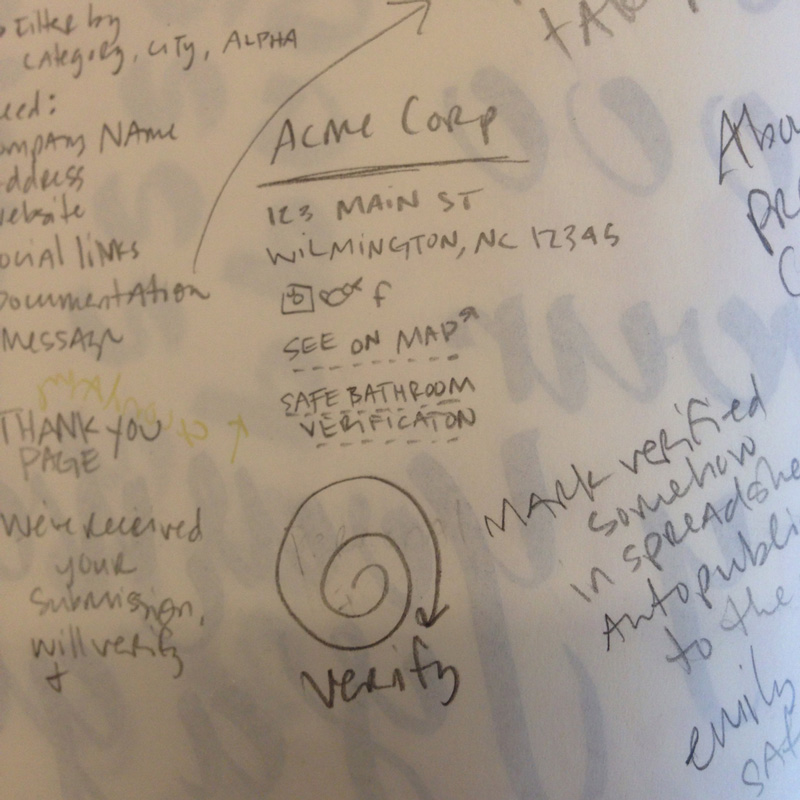 Filter by
CATEGORY, CITY, ALPHA
eed:
ompany Name
ddress
website
ocial links
Documentation
Message
THANK YOU
PAGE
We've received
your
submission,
will verify
+
ACME CORP
123 MAIN ST
WILMINGTON, NC 12345
f
SEE ON MAP
SAFE BATHROOM
VERIFICATON
verify
Mark verified
somehow
in spreadshe
Autopubli
to the
emily
SAF
Abou
PRO